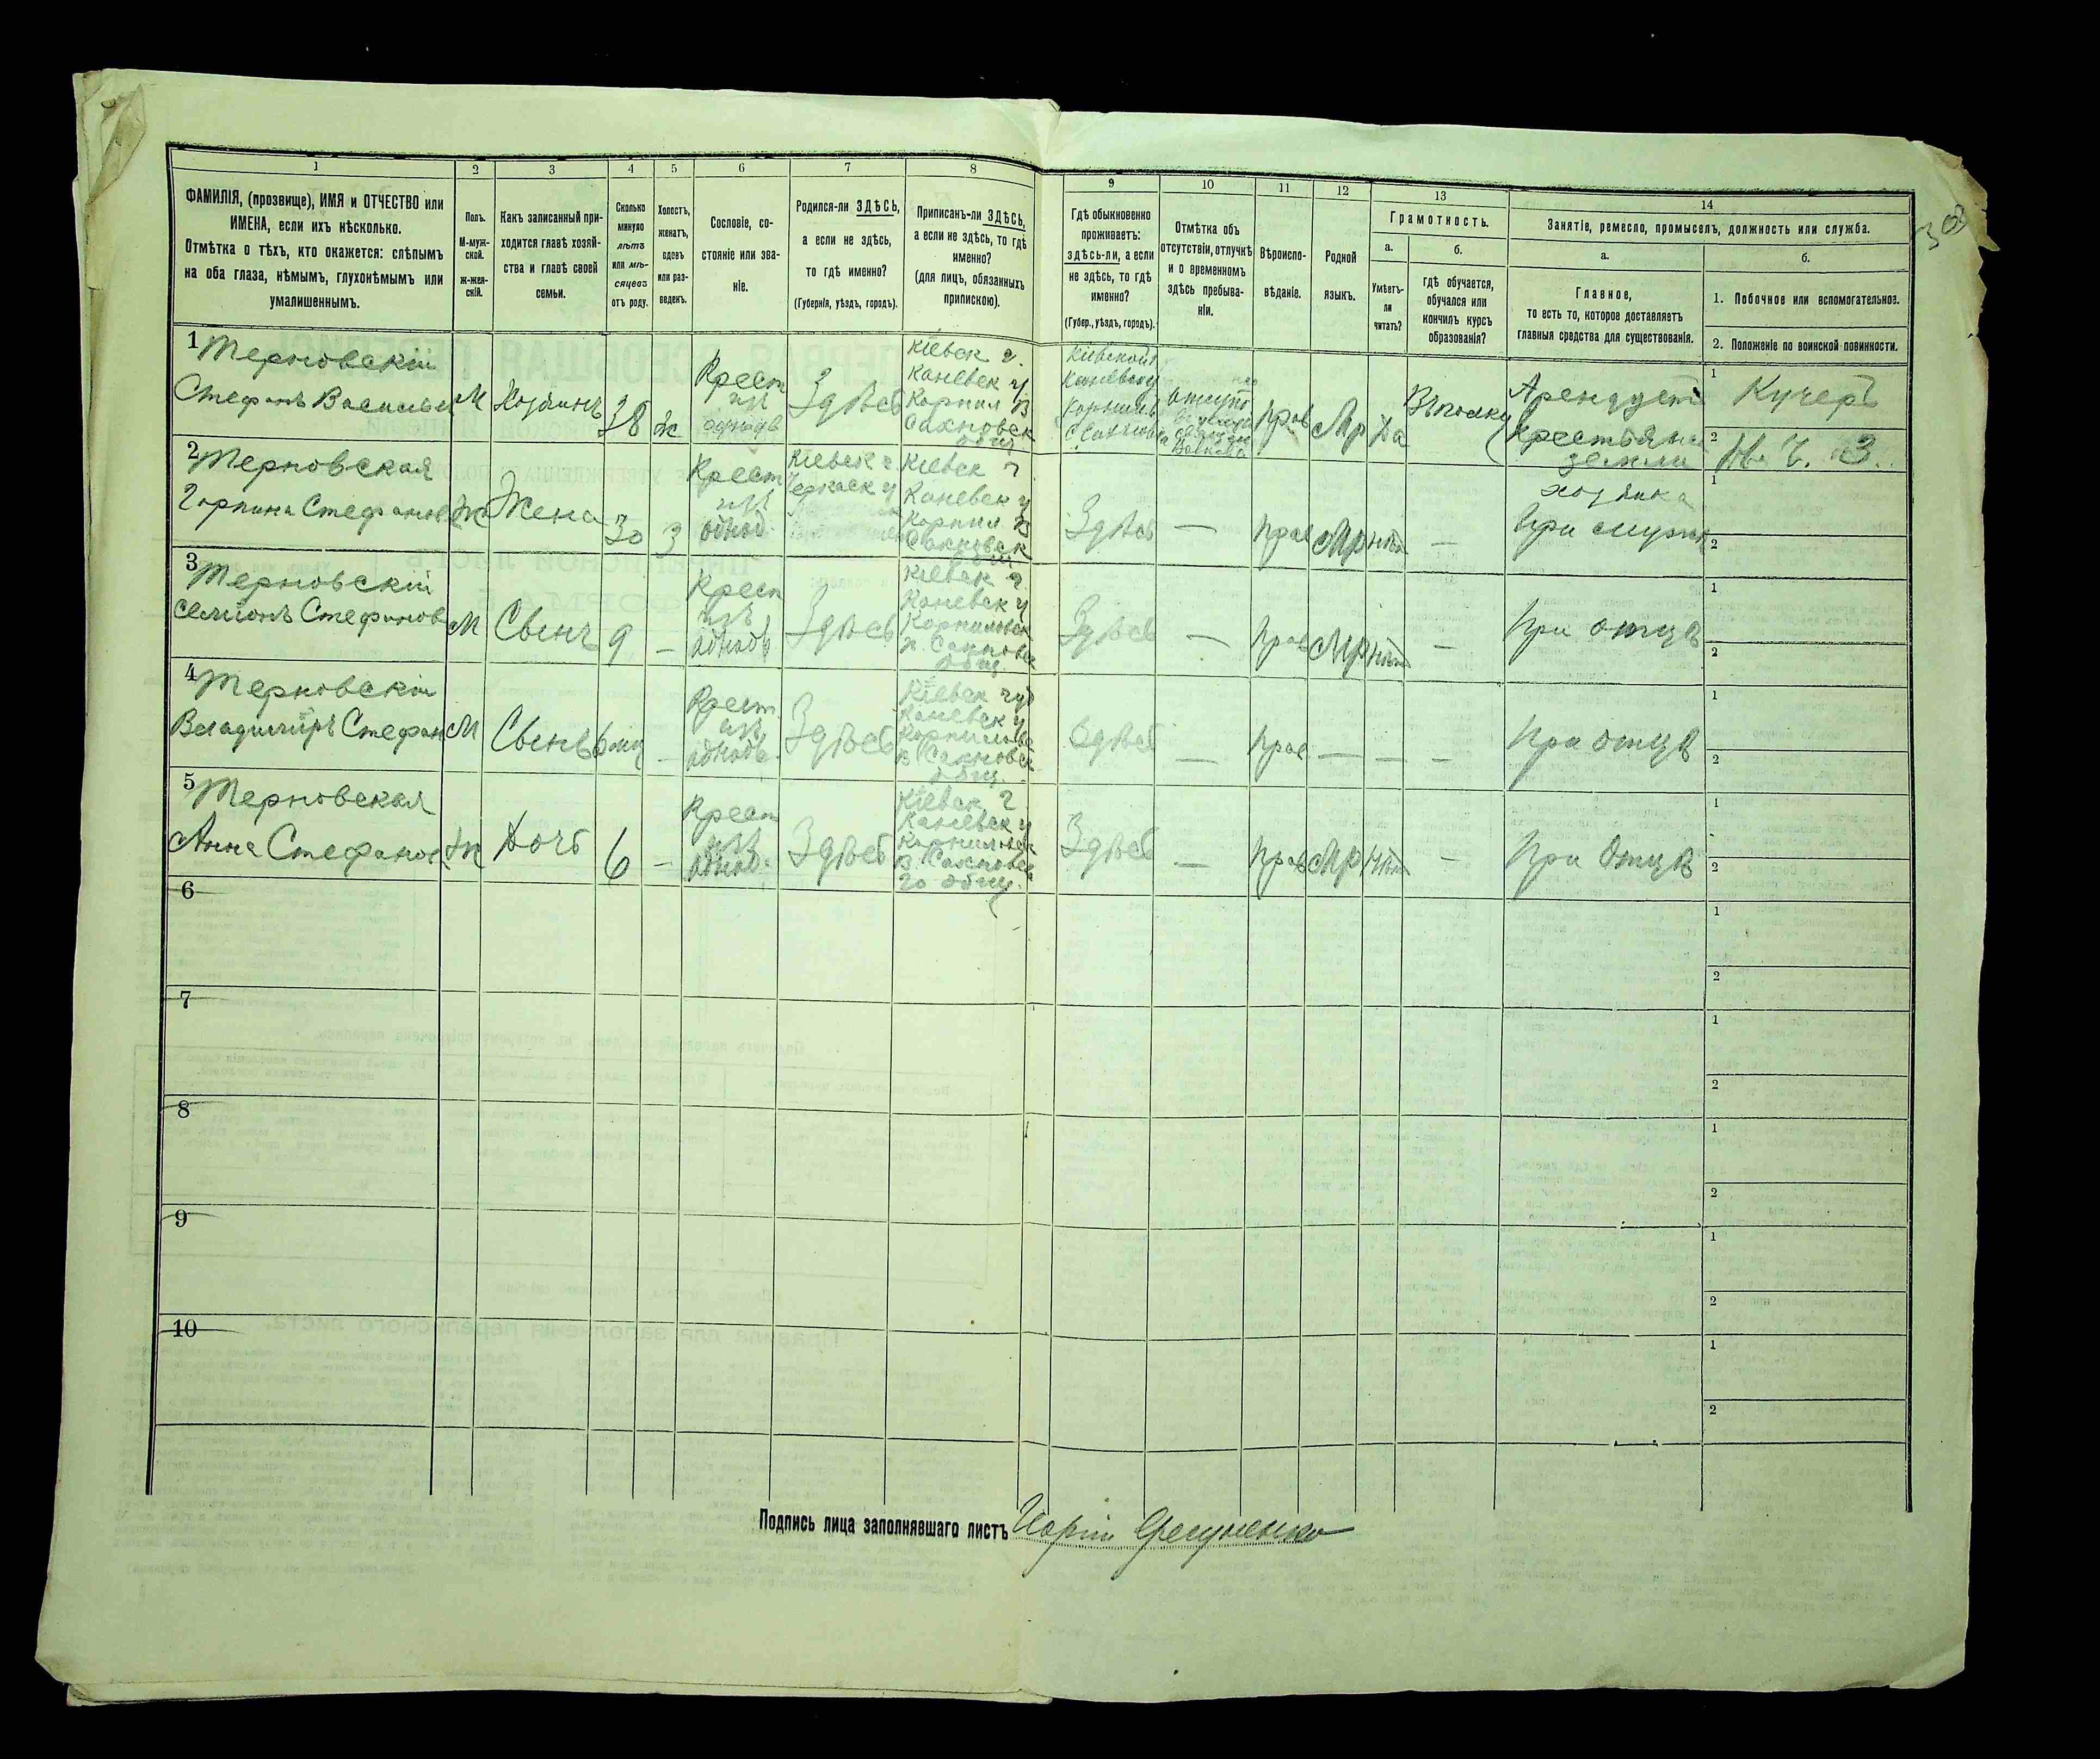 1 2 3 4 5 6 7 8 9 10 11 12 13 14
ФАМИЛІЯ, (прозвище), ИМЯ и ОТЧЕСТВО или
ИМЕНА, если ихъ нѣсколько.
Отмѣтка о тѣхъ, кто окажется: слѣпымъ
на оба глаза, нѣмымъ, глухонѣмымъ или
умалишеннымъ.
Полъ.
М-муж-
ской.
ж-жен-
скій.
Какъ записанный при-
ходится главѣ хозяй-
ства и главѣ своей
семьи.
Сколько
минуло
лѣтъ
или мѣ-
сяцевъ
отъ роду.
Холостъ,
женатъ,
вдовъ
или раз-
веденъ.
Сословіе, со-
стояніе или зва-
ніе.
Родился-ли ЗДѢСЬ,
а если не здѣсь,
то гдѣ именно?
(Губернія, уѣздъ, городъ).
Приписанъ-ли ЗДѢСЬ,
а если не здѣсь, то гдѣ
именно?
(для лицъ, обязанныхъ
припискою).
Гдѣ обыкновенно
проживаетъ:
здѣсь-ли, а если
не здѣсь, то гдѣ
именно?
(Губер., уѣздъ, городъ).
Отмѣтка объ
отсутствіи, отлучкѣ
и о временномъ
здѣсь пребыва-
ніи.
Вѣроиспо-
вѣданіе.
Родной
языкъ.
Грамотность.
а.
Умѣетъ-
ли
читать?
б.
Гдѣ обучается,
обучался или
кончилъ курсъ
образованія?
Занятіе, ремесло, промыселъ, должность или служба.
а.
Главное,
то есть то, которое доставляетъ
главныя средства для существованія.
б.
1. Побочное или вспомогательное.
2. Положеніе по воинской повинности.
1
Терновскій
Стефанъ Васильев
М
Хозяинъ
38
ж
Крест
изъ
однодв
Здѣсь
Кіевск г.
Каневск у
Корнил в
Сахновск
общ
Прав
Мр
Да
Въ полку
Арендует
Крестьян
земли
1
Кучеръ
2
Н. Ч. З.
2
Терновская
Горпина Стефанов
Ж
Жена
30
З
Крест
изъ
однод.
Кіевск г
Черкаск у
Кіевск г
Каневск у
Корнил в
Сахновск
общ
Здѣсь
—
Прав
Мр
нѣт
—
хозяйка
при мужѣ
1
2
3
Терновскій
Семіонъ Стефанов
М
Сынъ
9
—
Крест
изъ
однодв
Здѣсь
Кіевск г
Каневск у
Корниловск
в. Сахновск
общ
Здѣсь
—
Прав
Мр
нѣт
—
при отцѣ
1
2
4
Терновскій
Владиміръ Стефан
М
Сынъ
6 мц
—
Крест
изъ
однодв.
Здѣсь
Кіевск губ
Каневск у
Корниловск
в Сахновск
общ.
Здѣсь
—
Прав
—
—
—
при отцѣ
1
2
5
Терновская
Анна Стефанов
Ж
Дочь
6
—
Крест
изъ
однод.
Здѣсь
Кіевск г
Каневск у
Корниловск
в. Сахновск
го общ.
Здѣсь
—
Прав
Мр
Нѣт
—
при отцѣ
1
2
6
1
2
7
1
2
8
1
2
9
1
2
10
1
2
Подпись лица заполнявшаго листъ